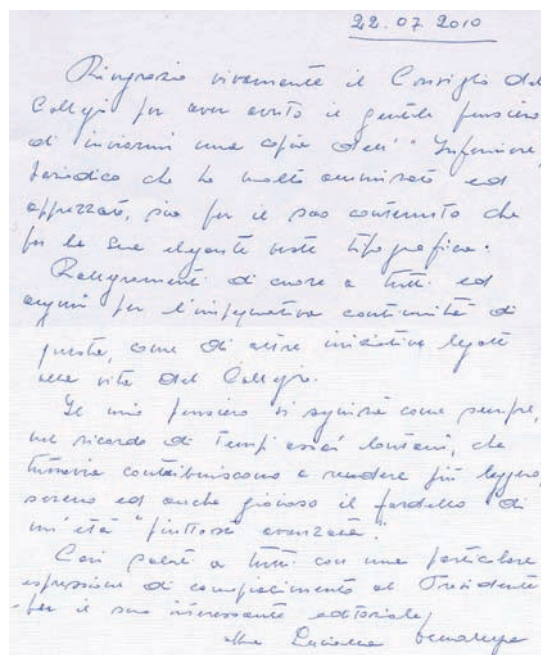 22.07 2010
Ringrazio vivamente il Consiglio del
Collegio per aver avuto il gentile pensiero
di inviarmi una copia dell' "Informiere,
periodico che ho molto ammirato ed
apprezzato, sia per il suo contenuto che
per la sua elegante veste tipografica.
Rallegramenti di cuore a tutti ed
auguri per l'impegnativa continuità di
questa, come di altre iniziative legate
alla vita del Collegio.
Il mio pensiero vi seguirà come sempre,
nel ricordo di tempi assai lontani, che
tuttavia contribuiscono a rendere più leggero,
sereno ed anche gioioso il fardello di
un'età "piuttosto avanzata".
Cari saluti a tutti con una particolare
espressione di compiacimento al Presidente
per il suo interessante editoriale,
Luciana